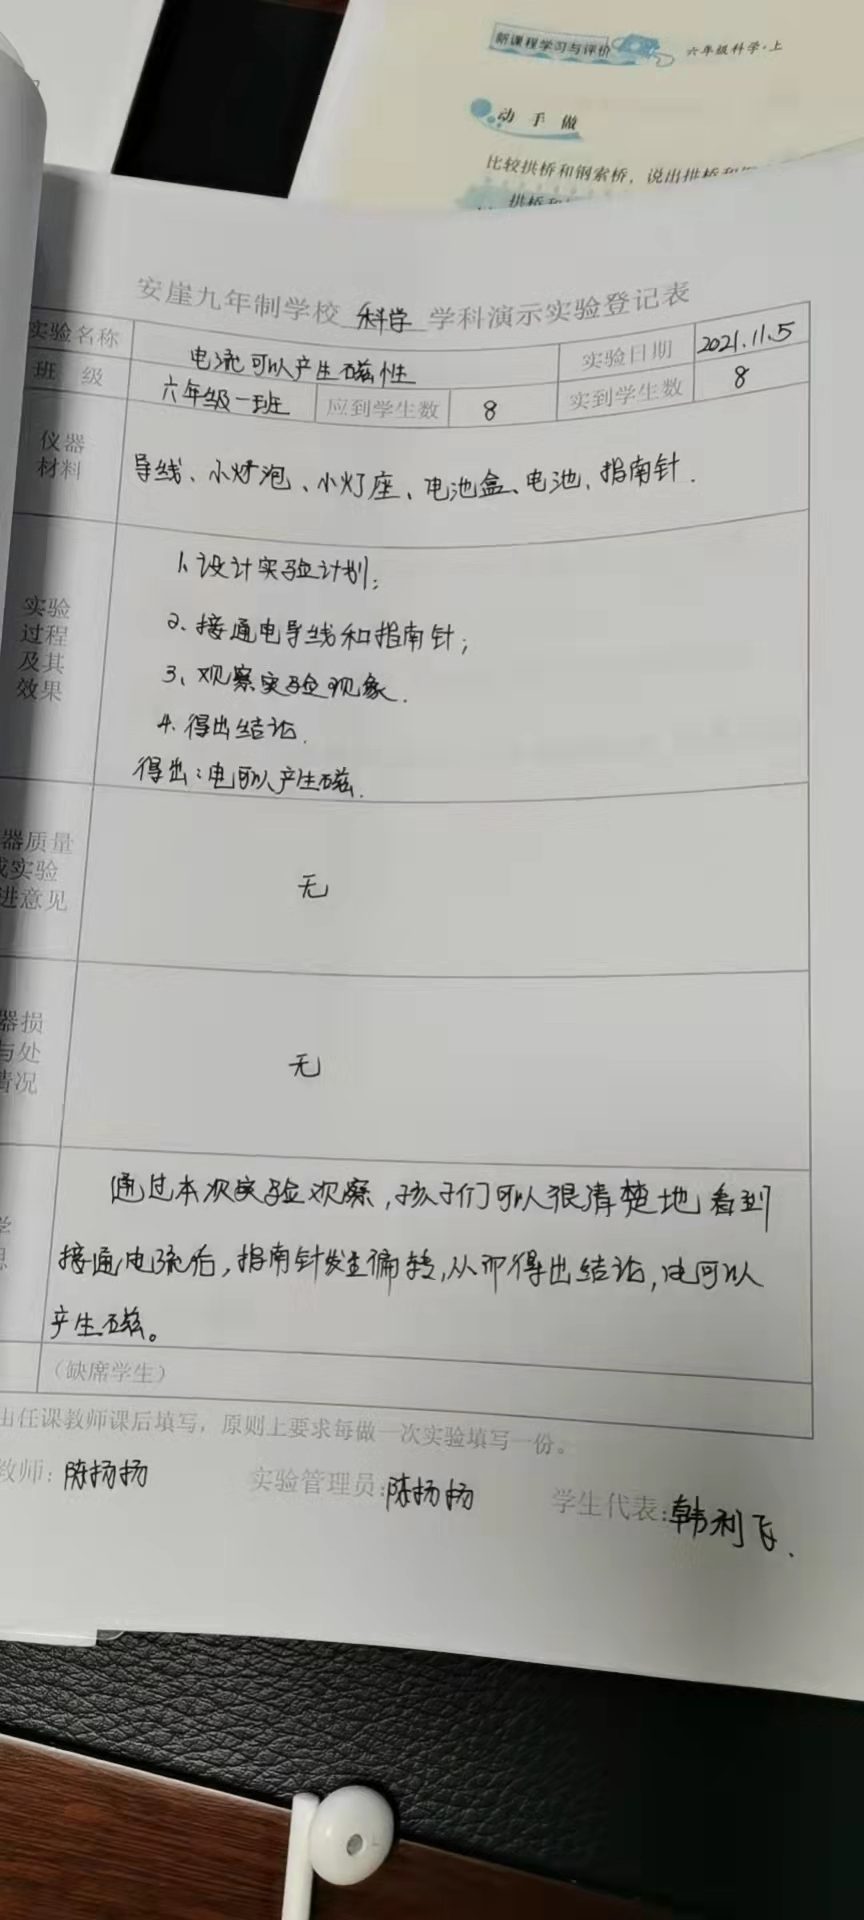 新课程学习与评价 六年级科学·上
动手做
比较拱桥和钢索桥，说出拱桥和
拱桥和
安崖九年制学校 科学 学科演示实验登记表
实验名称 电流可以产生磁性 实验日期 2021.11.5
班级 六年级一班 应到学生数 8 实到学生数 8
仪器
材料
导线、小灯泡、小灯座、电池盒、电池、指南针.
实验
过程
及其
效果
1、设计实验计划；
2、接通电导线和指南针；
3、观察实验现象.
4、得出结论.
得出：电可以产生磁.
器质量
或实验
进意见
无
器损
与处
情况
无
学
思
通过本次实验观察，孩子们可以很清楚地看到
接通电流后，指南针发生偏转，从而得出结论，电可以
产生磁。
（缺席学生）
由任课教师课后填写，原则上要求每做一次实验填写一份。
教师：陈扬扬 实验管理员：陈扬扬 学生代表：韩利飞.